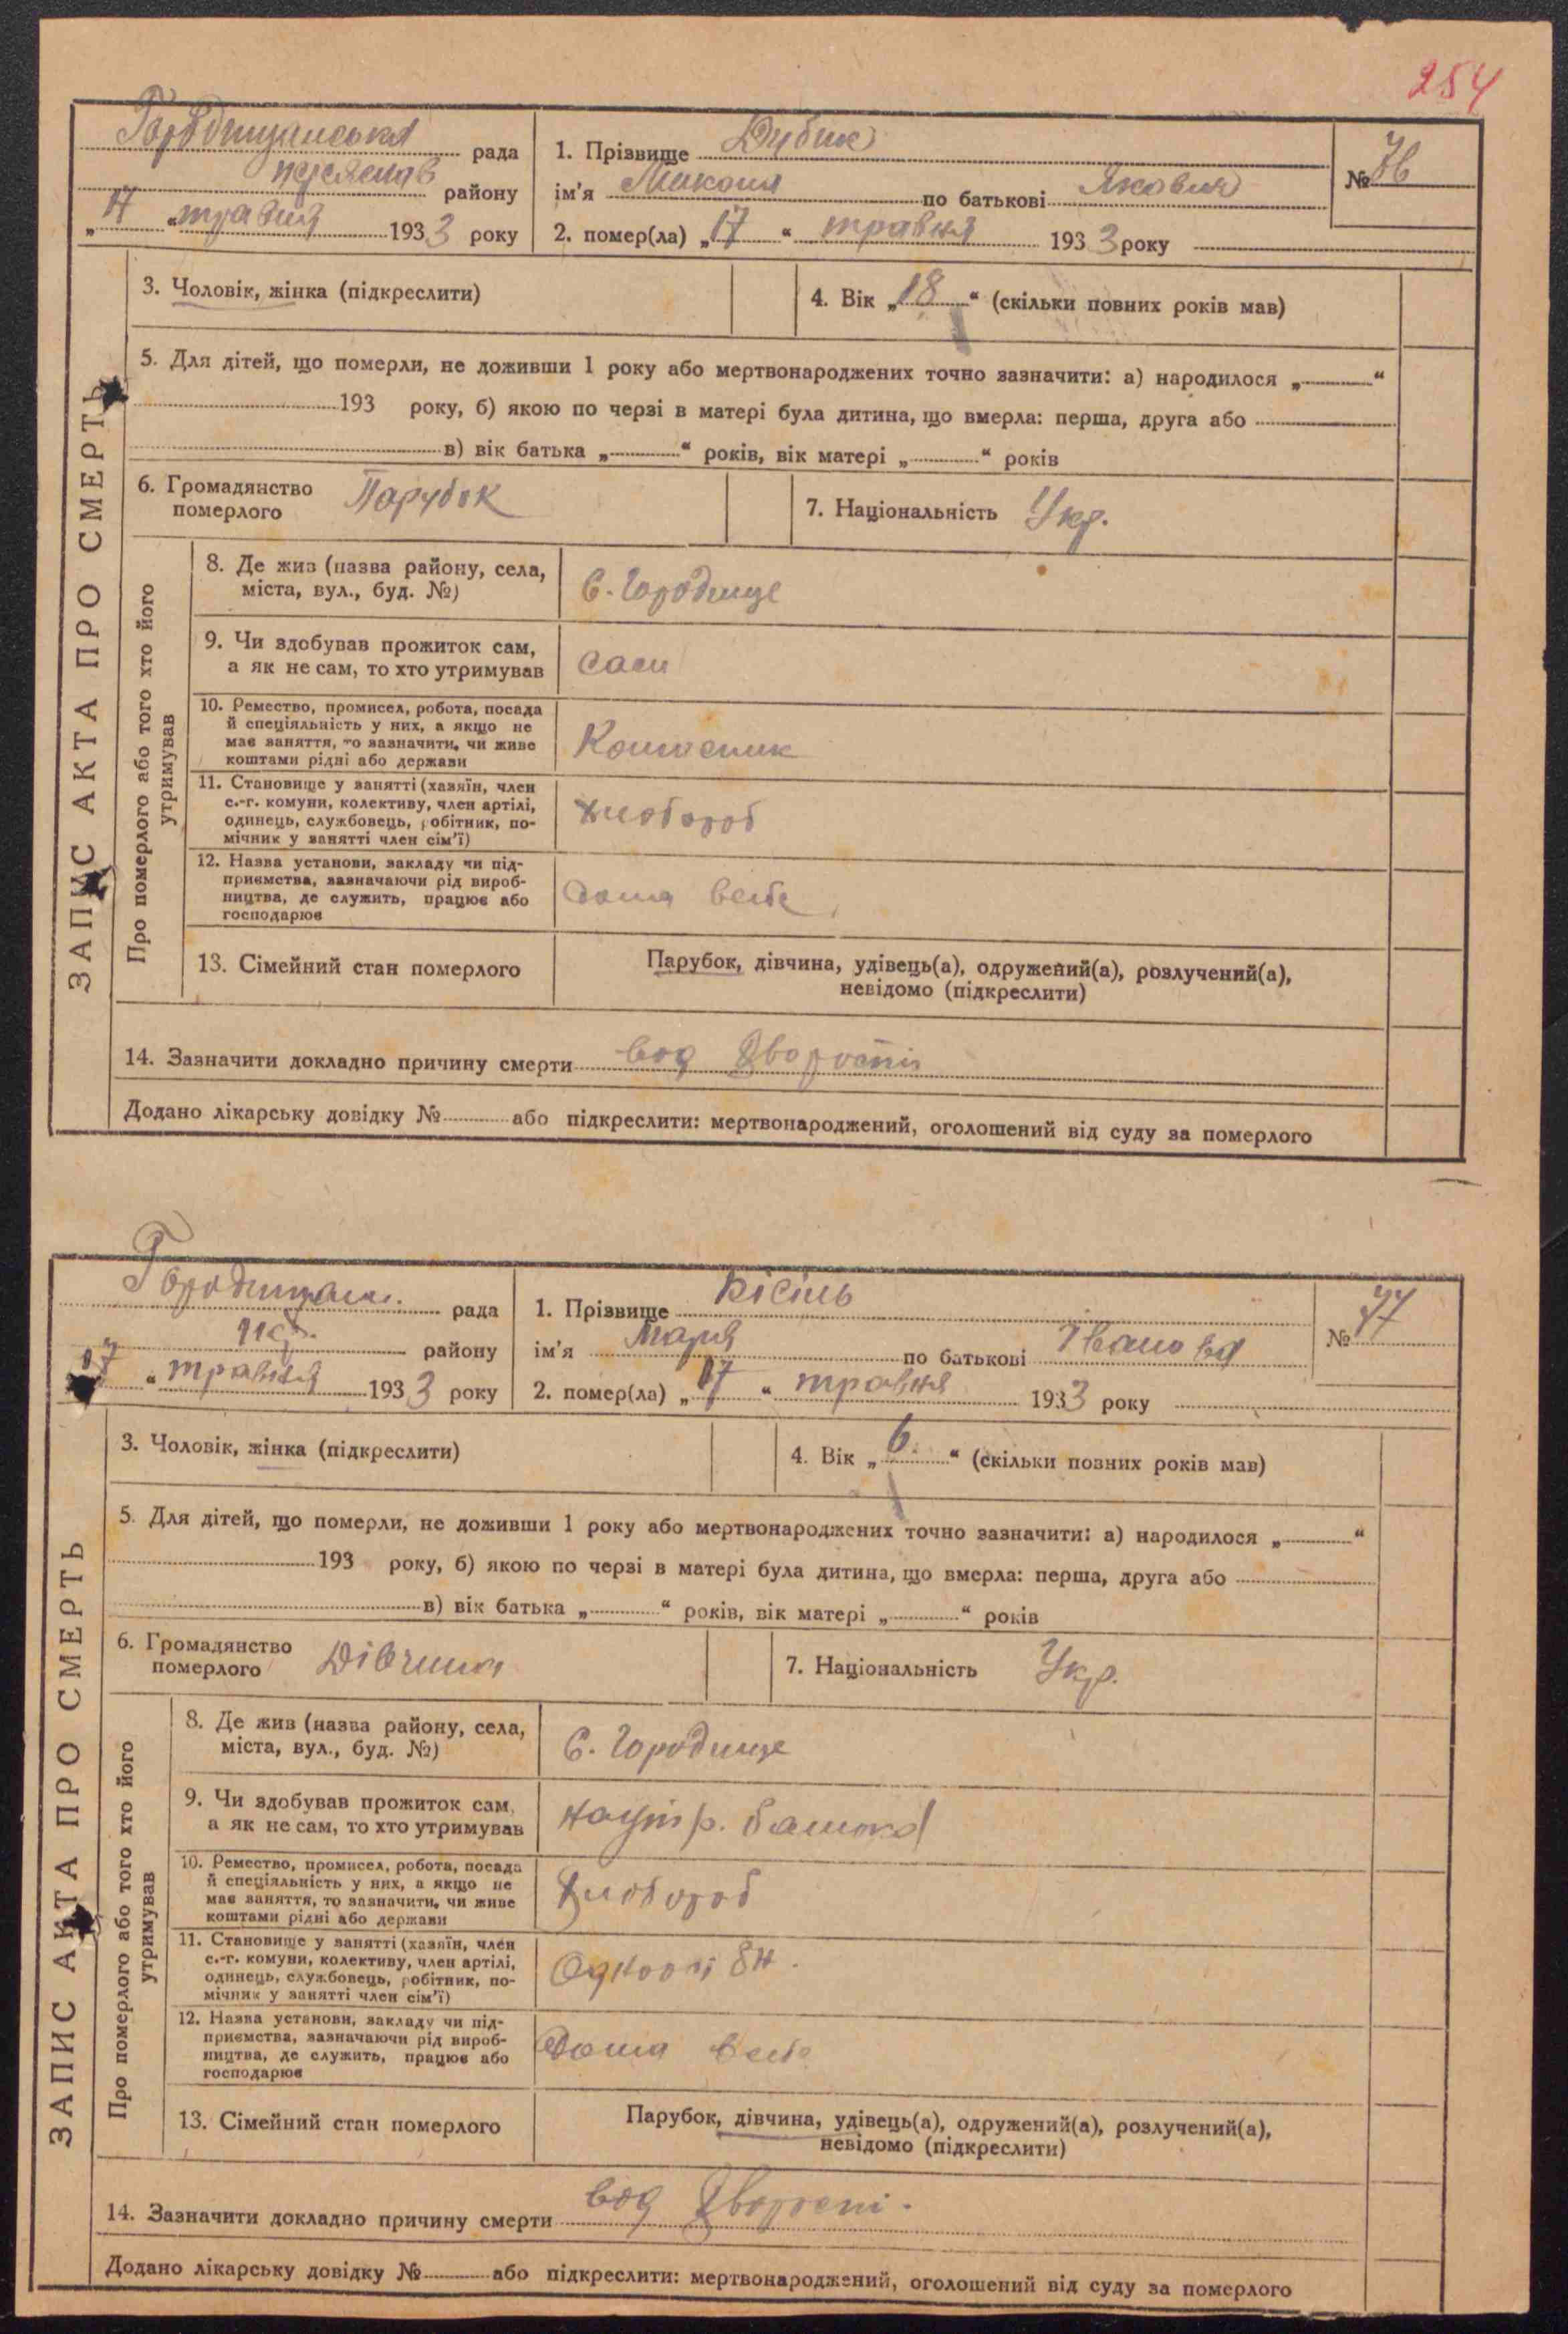 254
Городищанська рада
Переяслав району
„17 “ травня 1933 року
1. Прізвище Дубик
ім'я Микола по батькові Якович
2. помер(ла) „17 “ травня 1933 року
№ 76
ЗАПИС АКТА ПРО СМЕРТЬ
3. Чоловік, жінка (підкреслити)
4. Вік „18 “ (скільки повних років мав)
5. Для дітей, що померли, не доживши 1 року або мертвонароджених точно зазначити: а) народилося „ “
193 року, б) якою по черзі в матері була дитина, що вмерла: перша, друга або
в) вік батька „ “ років, вік матері „ “ років
6. Громадянство
померлого Парубок
7. Національність Укр.
Про померлого або того хто його
утримував
8. Де жив (назва району, села,
міста, вул., буд. №)
С. Городище
9. Чи здобував прожиток сам,
а як не сам, то хто утримував
сам
10. Ремество, промисел, робота, посада
й спеціяльність у них, а якщо не
має заняття, то зазначити, чи живе
коштами рідні або держави
11. Становище у занятті (хазяїн, член
с.-г. комуни, колективу, член артілі,
одинець, службовець, робітник, по-
мічник у занятті член сім'ї)
хлібороб
12. Назва установи, закладу чи під-
приємства, зазначаючи рід вироб-
ництва, де служить, працює або
господарює
13. Сімейний стан померлого
Парубок, дівчина, удівець(а), одружений(а), розлучений(а),
невідомо (підкреслити)
14. Зазначити докладно причину смерти вод Хворости
Додано лікарську довідку № або підкреслити: мертвонароджений, оголошений від суду за померлого
Городищан. рада
Пер. району
17 “ травня 1933 року
1. Прізвище Кісіль
ім'я Марія по батькові Іванова
2. помер(ла) „17 “ травня 1933 року
№ 77
ЗАПИС АКТА ПРО СМЕРТЬ
3. Чоловік, жінка (підкреслити)
4. Вік „6. “ (скільки повних років мав)
5. Для дітей, що померли, не доживши 1 року або мертвонароджених точно зазначити: а) народилося „ “
193 року, б) якою по черзі в матері була дитина, що вмерла: перша, друга або
в) вік батька „ “ років, вік матері „ “ років
6. Громадянство
померлого Дівчина
7. Національність Укр.
Про померлого або того хто його
утримував
8. Де жив (назва району, села,
міста, вул., буд. №)
С. Городище
9. Чи здобував прожиток сам,
а як не сам, то хто утримував
на утр. батька
10. Ремество, промисел, робота, посада
й спеціяльність у них, а якщо не
має заняття, то зазначити, чи живе
коштами рідні або держави
Хлібороб
11. Становище у занятті (хазяїн, член
с.-г. комуни, колективу, член артілі,
одинець, службовець, робітник, по-
мічник у занятті член сім'ї)
12. Назва установи, закладу чи під-
приємства, зазначаючи рід вироб-
ництва, де служить, працює або
господарює
13. Сімейний стан померлого
Парубок, дівчина, удівець(а), одружений(а), розлучений(а),
невідомо (підкреслити)
14. Зазначити докладно причину смерти вод Хворости.
Додано лікарську довідку № або підкреслити: мертвонароджений, оголошений від суду за померлого